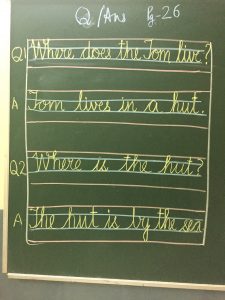 Q/Ans Pg-26
Q1 Where does the Tom live?
A Tom lives in a hut.
Q2 Where is the hut?
A The hut is by the sea